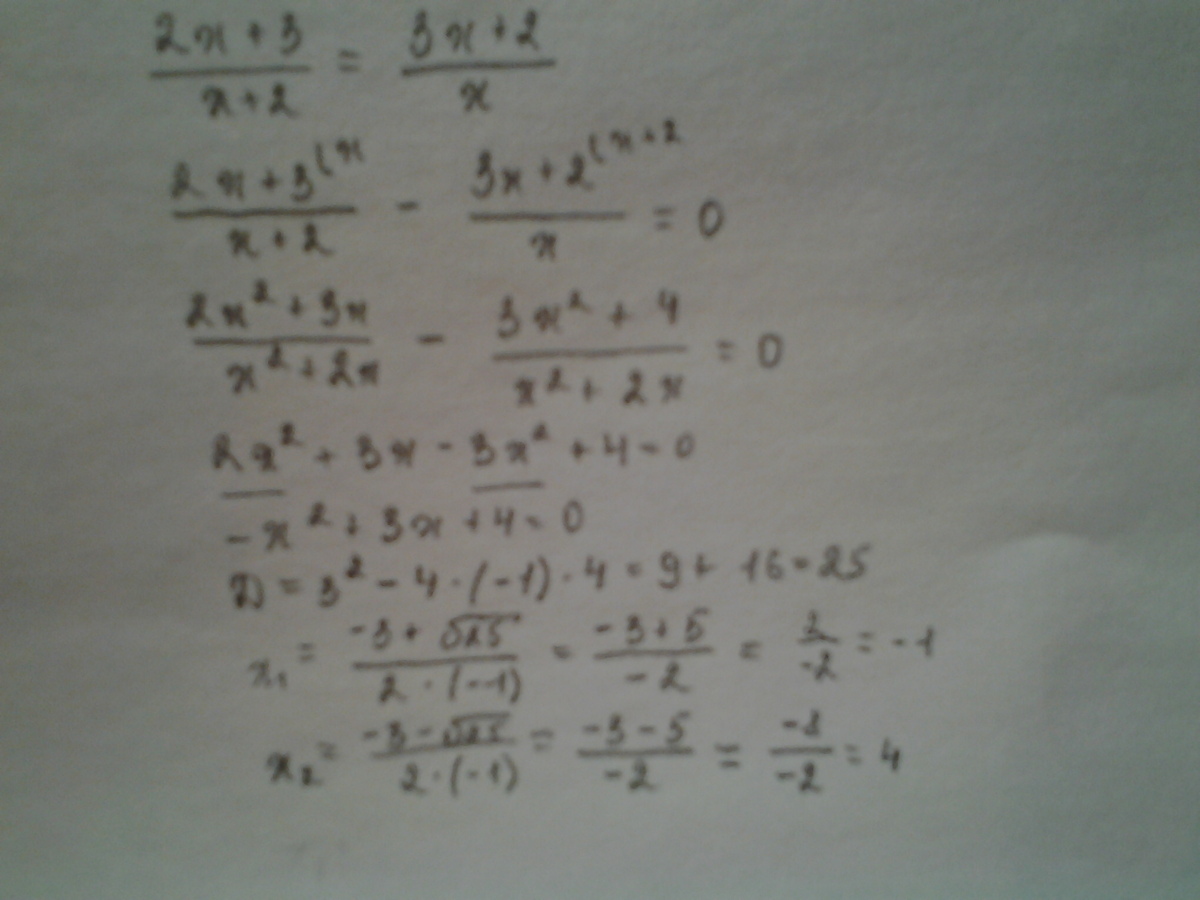 (2x + 3)/(x + 2) = (3x + 2)/x
(2x + 3^(x)/(x + 2) - (3x + 2^(x + 2)/x = 0
(2x² + 3x)/(x² + 2x) - (3x² + 4)/(x² + 2x) = 0
2x² + 3x - 3x² + 4 = 0
-x² + 3x + 4 = 0
D = 3² - 4 · (-1) · 4 = 9 + 16 = 25
x₁ = (-3 + √25)/(2 · (-1)) = (-3 + 5)/(-2) = 2/(-2) = -1
x₂ = (-3 - √25)/(2 · (-1)) = (-3 - 5)/(-2) = (-8)/(-2) = 4